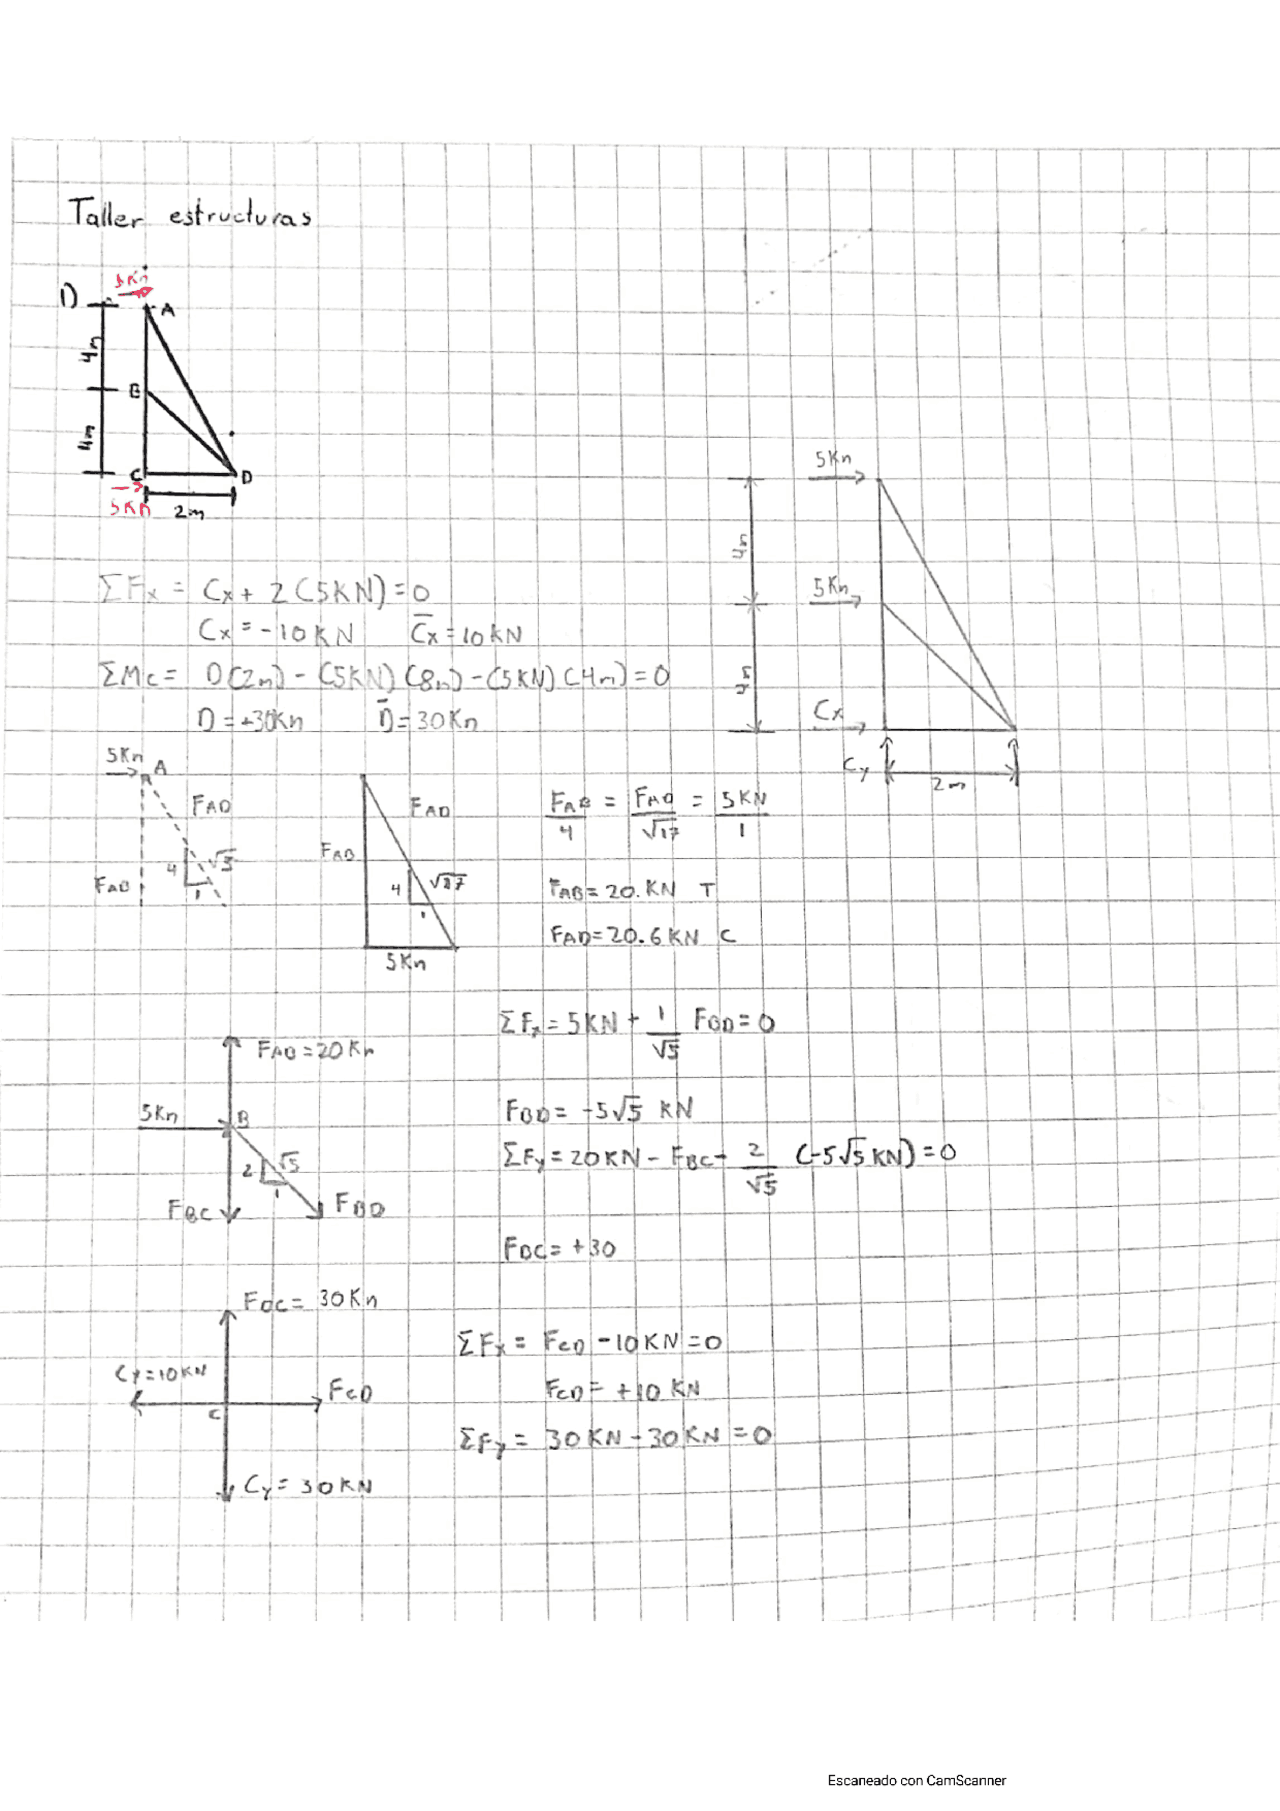 Taller estructuras
1)
5Kn
A
4m
B
4m
C
D
5Kn
2m
5Kn
4m
5Kn
4m
Cx
Cy
2m
ΣFx = Cx + 2(5KN)=0
Cx = -10KN   C̄x=10KN
ΣMc= D(2m) - (5KN)(8m) - (5KN)(4m)=0
D=+30Kn   D̄=30Kn
5Kn A
FAD
4 √5
1
FAB
FAD
FAB
4 √17
1
5Kn
FAB/4 = FAD/√17 = 5KN/1
FAB=20.KN T
FAD=20.6KN C
ΣFx=5KN + 1/√5 FBD=0
FAB=20Kn
5Kn
B
2 √5
1
FBC
FBD
FBD= -5√5 KN
ΣFy=20KN - FBC - 2/√5 (-5√5KN)=0
FBC= +30
FBC= 30Kn
Cx=10KN
FCD
C
Cy= 30KN
ΣFx= FCD -10KN=0
FCD= +10 KN
ΣFy= 30KN-30KN=0
Escaneado con CamScanner